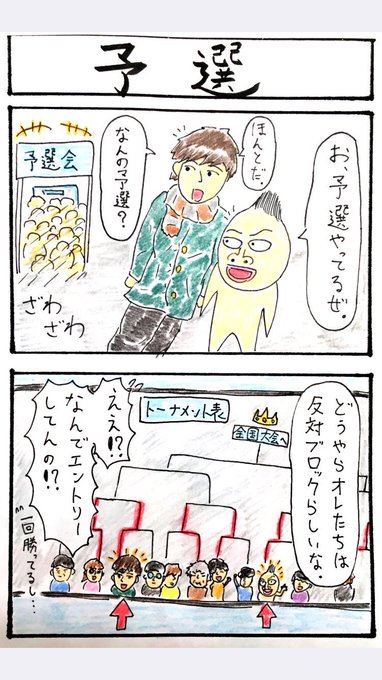 予選
お、予選やってるぜ。
ほんとだ。
なんの予選?
予選会
ざわ
ざわ
どうやらオレたちは
反対ブロックらしいな。
トーナメント表
全国大会へ
ええ!?
なんでエントリー
してんの!?
一回勝ってるし…